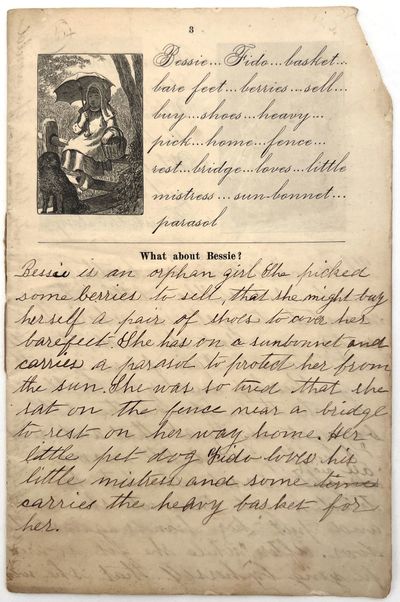 3
Bessie... Fido... basket...
bare feet... berries... sell...
buy... shoes... heavy...
pick... home... fence...
rest... bridge... loves... little
mistress... sun-bonnet...
parasol
What about Bessie?
Bessie is an orphan girl She picked
some berries to sell, that she might buy
herself a pair of shoes to cover her
barefeet. She has on a sunbonnet and
carries a parasol to protect her from
the sun. She was so tired that she
sat on the fence near a bridge
to rest on her way home. Her
little pet dog Fido loves his
little mistress and some times
carries the heavy basket for
her.